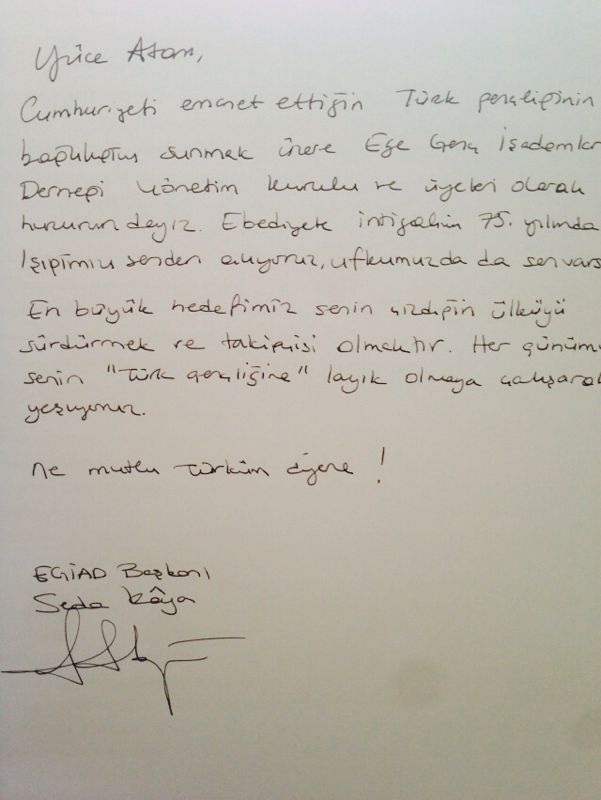 Yüce Atam,
Cumhuriyeti emanet ettiğin Türk gençliğinin
bağlılığını sunmak üzere Ege Genç İşadamlar
Derneği Yönetim Kurulu ve üyeleri olarak
huzurundayız. Ebediyete intigalinin 75. yılında
Işığımızı senden alıyoruz, ufkumuzda da sen vars
En büyük hedefimiz senin çizdiğin ülküyü
sürdürmek ve takipçisi olmaktır. Her günümü
senin "Türk gençliğine" layık olmaya çalışarak
yaşıyoruz.
Ne mutlu Türküm diyene !
EGİAD Başkanı
Seda Kâya